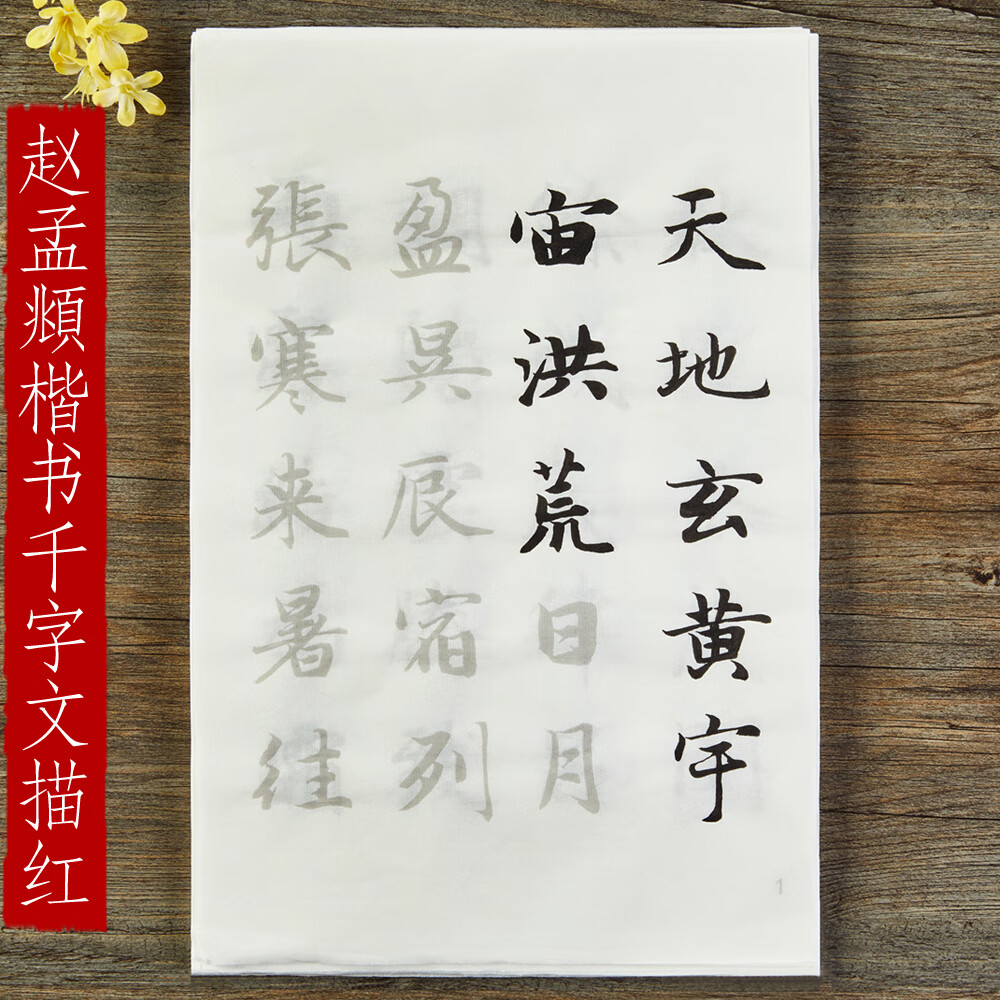 赵孟頫楷书千字文描红
天地玄黄宇
宙洪荒日月
盈昃辰宿列
張寒来暑往
1